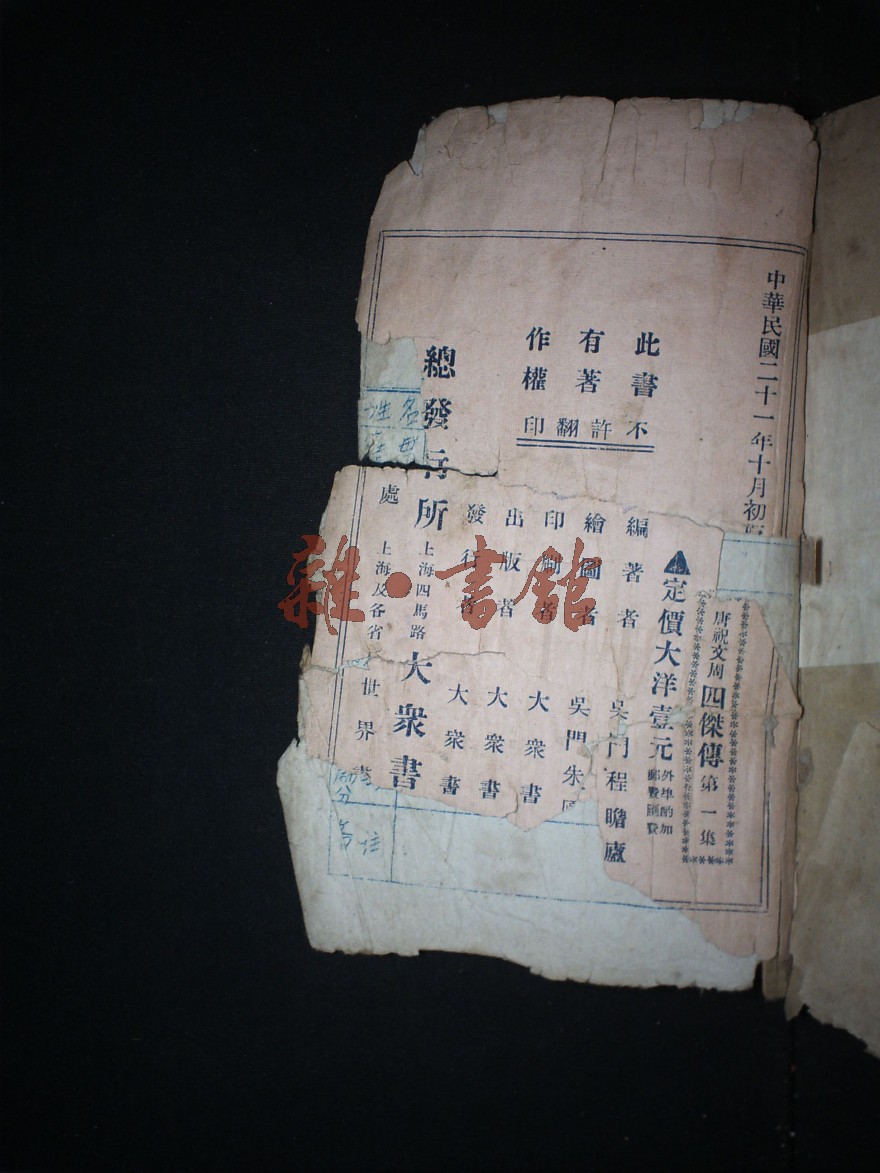 中華民國二十一年十月初
此書有著作權
不許翻印
唐祝文周四傑傳第一集
定價大洋壹元
外埠酌加
郵費匯費
編著者 吳門程瞻廬
繪圖者 吳門朱
印刷者 大衆書
出版者 大衆書
發行者 大衆書
總發行所 上海四馬路 大衆書
處 上海及各省 世界書
姓名
部分
备注
雜·書館